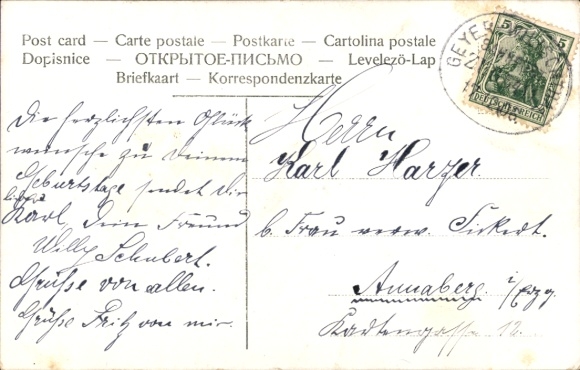 Post card — Carte postale — Postkarte — Cartolina postale
Dopisnice — ОТКРЫТОЕ-ПИСЬМО — Levelező-Lap
Briefkaart — Korrespondenzkarte
5 5
DEUTSCHES REICH
GEYER
Die herzlichsten Glück
wünsche zu Deinem
Geburtstage sendet Dir
lieber
Karl, Dein Freund
Willy Schubert.
Grüße von allen.
Grüße Fritz von mir.
Herrn
Karl Harzer.
b. Frau verw. Sickert.
Annaberg. i/Erzg.
Kartengasse 12.